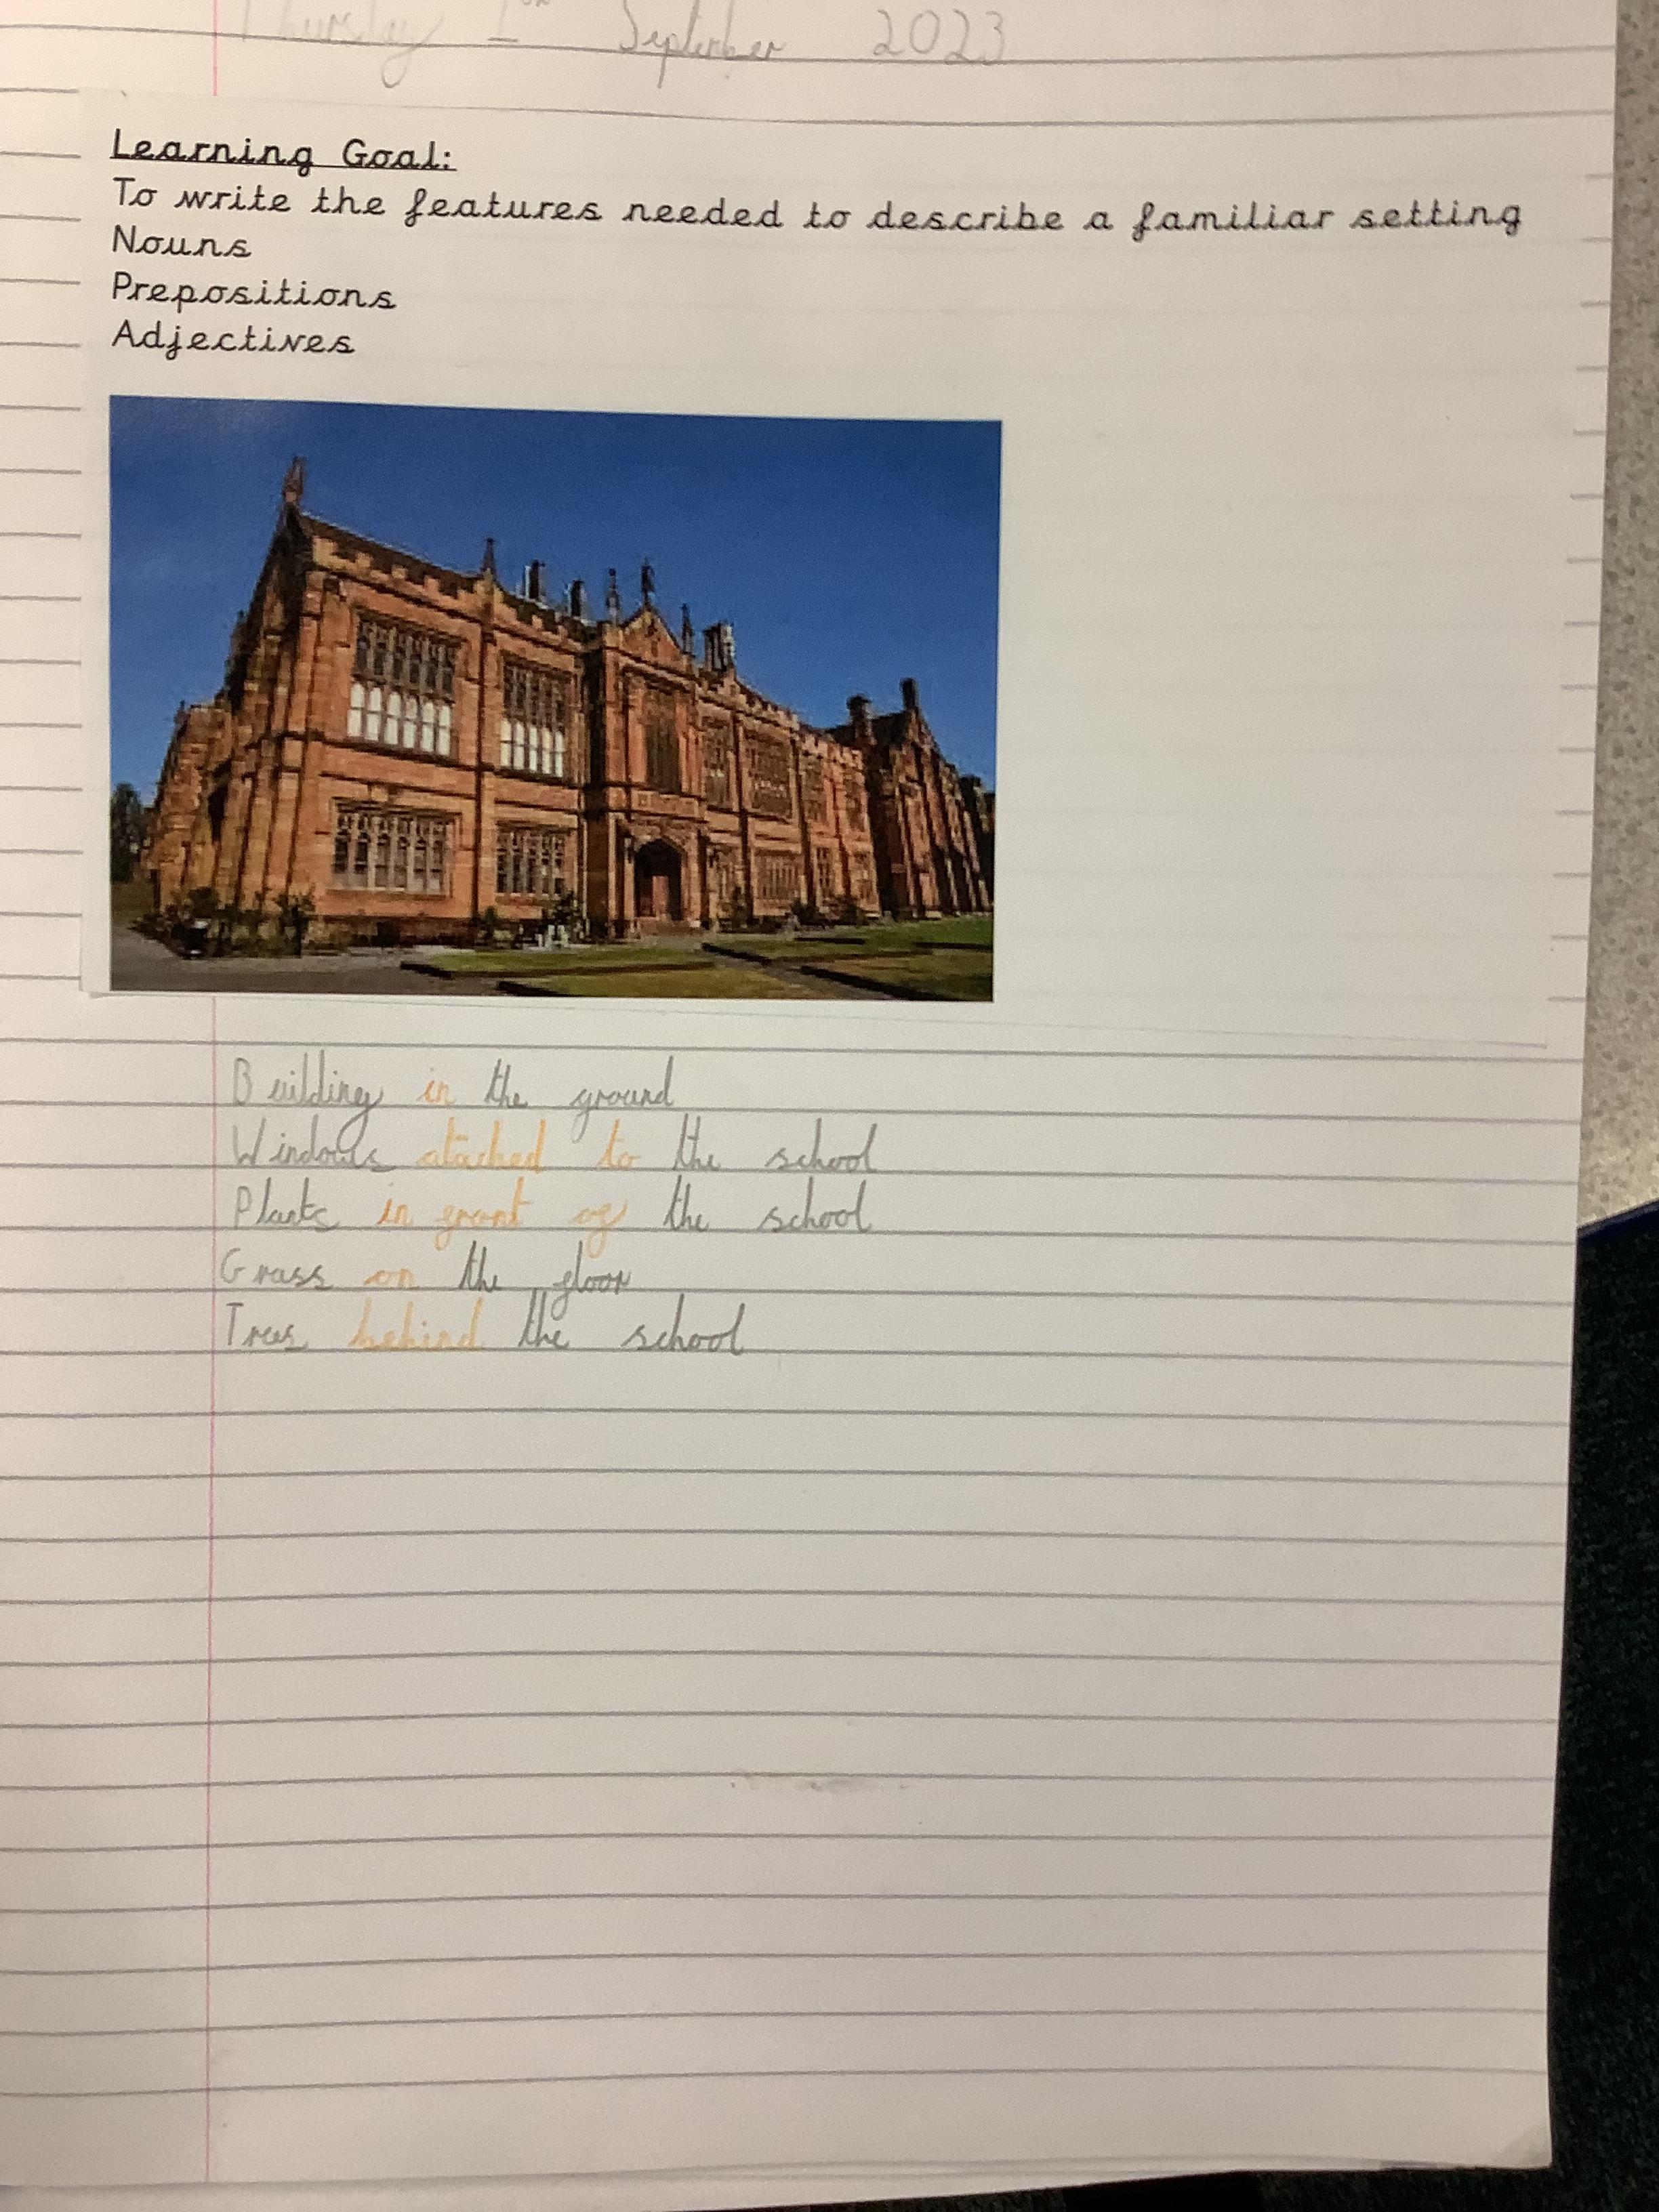 Thursday 1 September 2023
Learning Goal:
To write the features needed to describe a familiar setting
Nouns
Prepositions
Adjectives
Building in the ground
Windows atached to the school
Plants in front of the school
Grass on the floor
Trees behind the school